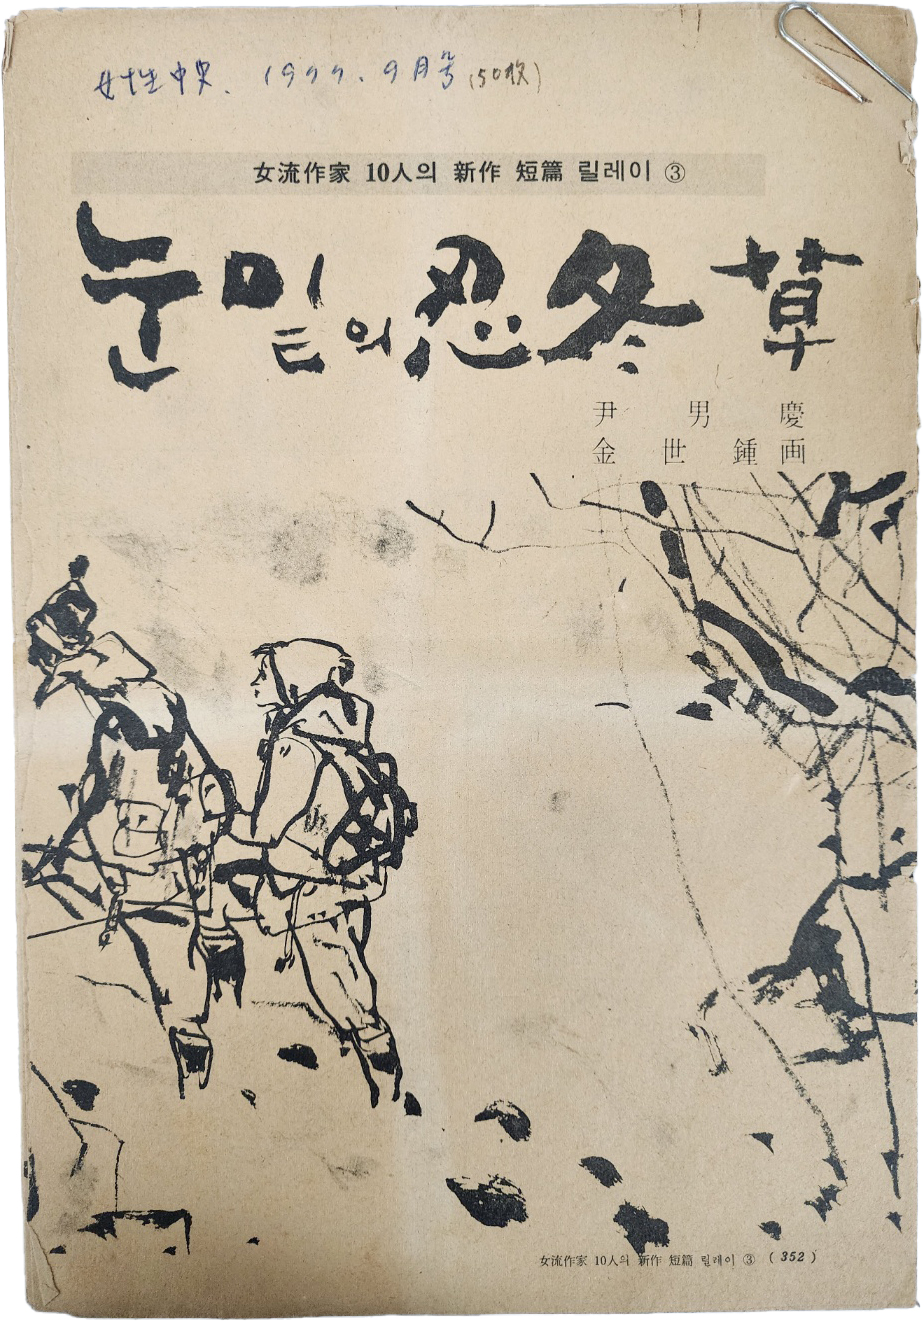 女性中央. 1977. 9月号 (50枚)
女流作家 10人의 新作 短篇 릴레이 ③
눈밑의 忍冬草
尹男慶
金世鍾画
女流作家 10人의 新作 短篇 릴레이 ③ (352)